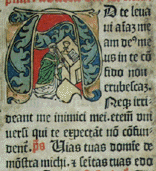 D te leua
ui aīaz meā
am deꝰ me
us in te cō
fido non
erubescaz.
Neqz irri
deant me inimici mei. etenim uni
uersi qui te expectāt nō cōfun
dent. ps Uias tuas domīe de
mōstra michi. ⁊ semitas tuas edo